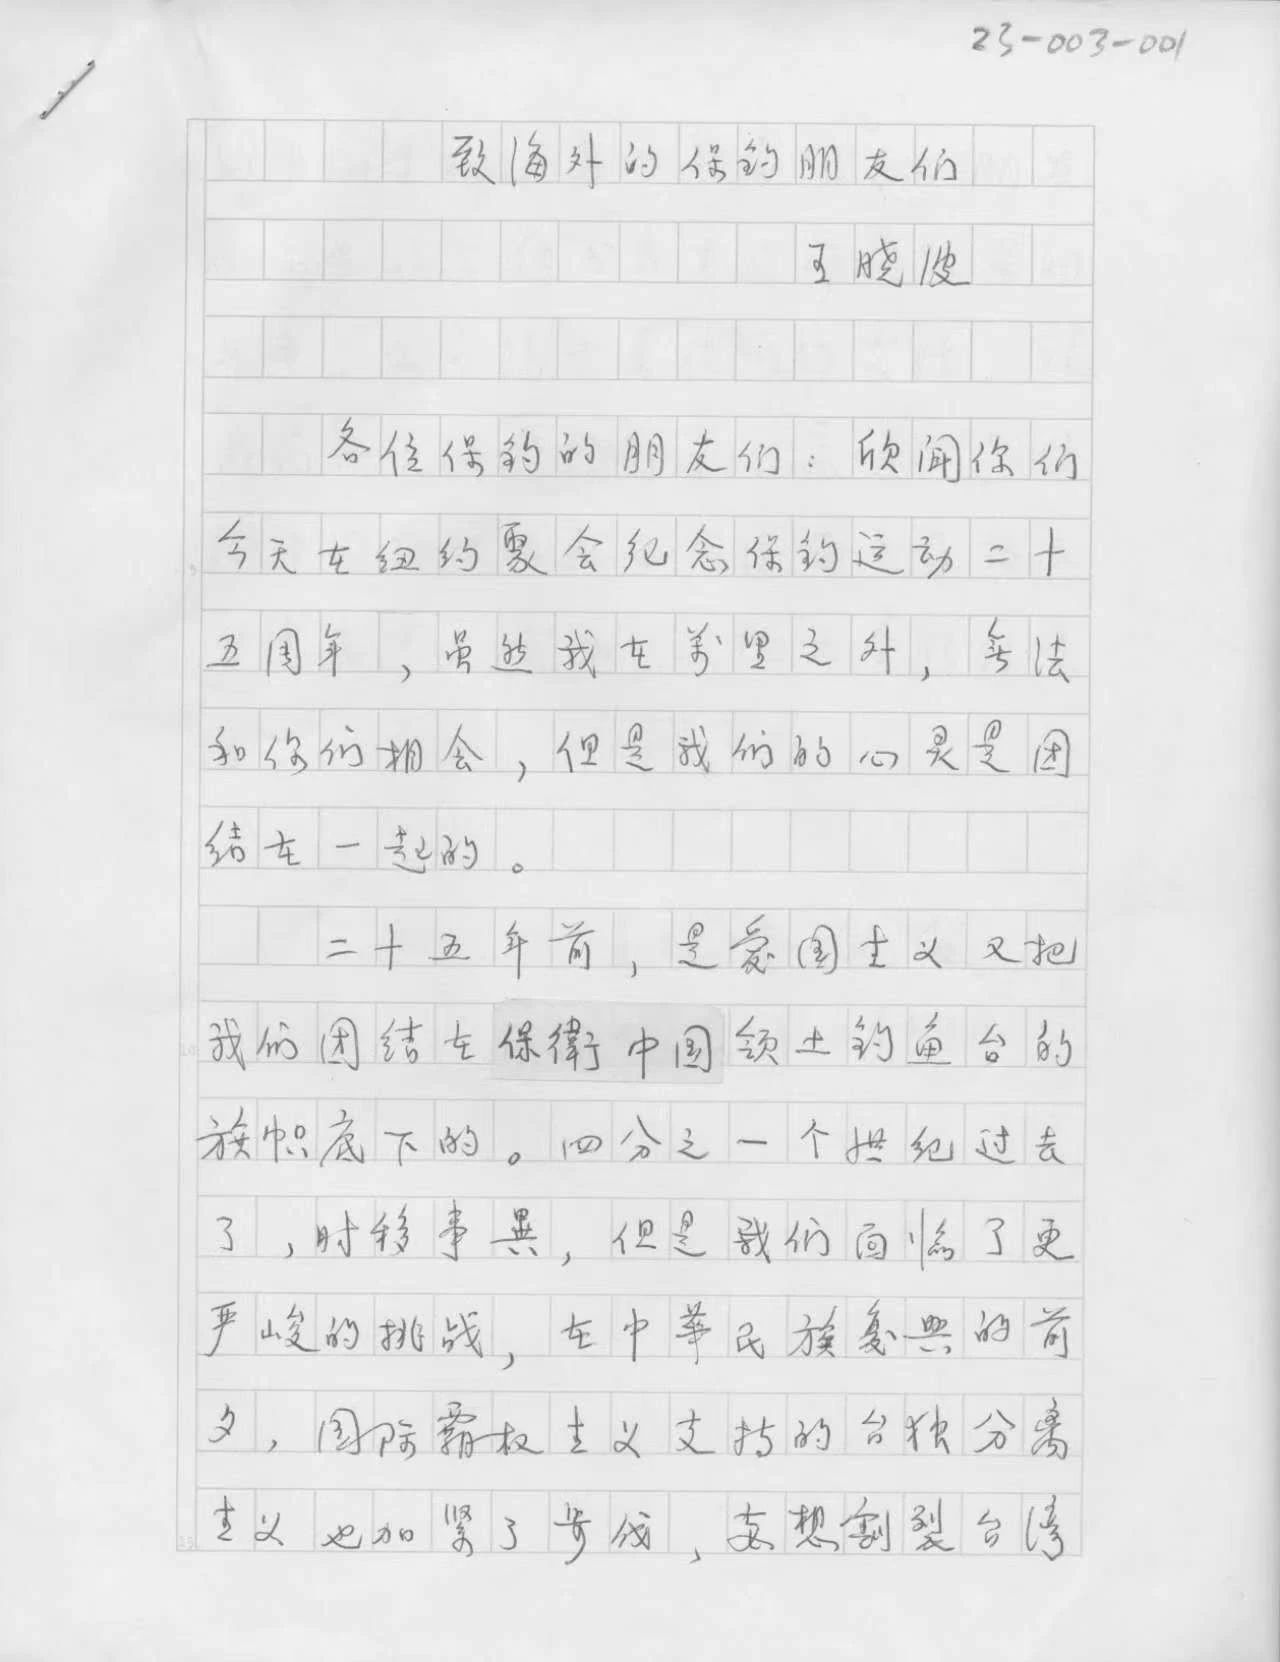 23-003-001
致海外的保钓朋友们
王晓波
各位保钓的朋友们：欣闻你们
今天在纽约聚会纪念保钓运动二十
五周年，虽然我在萬里之外，無法
和你们相会，但是我们的心灵是团
结在一起的。
二十五年前，是爱国主义又把
我们团结在保衛中国领土钓鱼台的
旗帜底下的。四分之一个世纪过去
了，时移事異，但是我们面临了更
严峻的挑战，在中華民族复興的前
夕，国际霸权主义支持的台独分离
主义也加紧了步伐，妄想割裂台湾